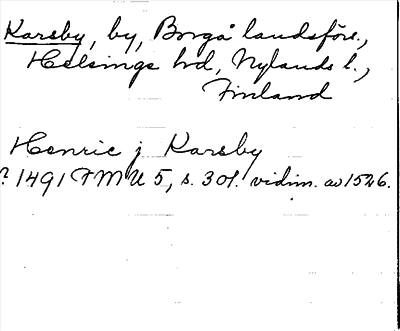 Karsby, by, Borgå landsförs.,
Helsinge hd, Nylands l.,
Finland
Henric j Karsby
? 1491 FMU 5, s. 301. vidim. av 1526.